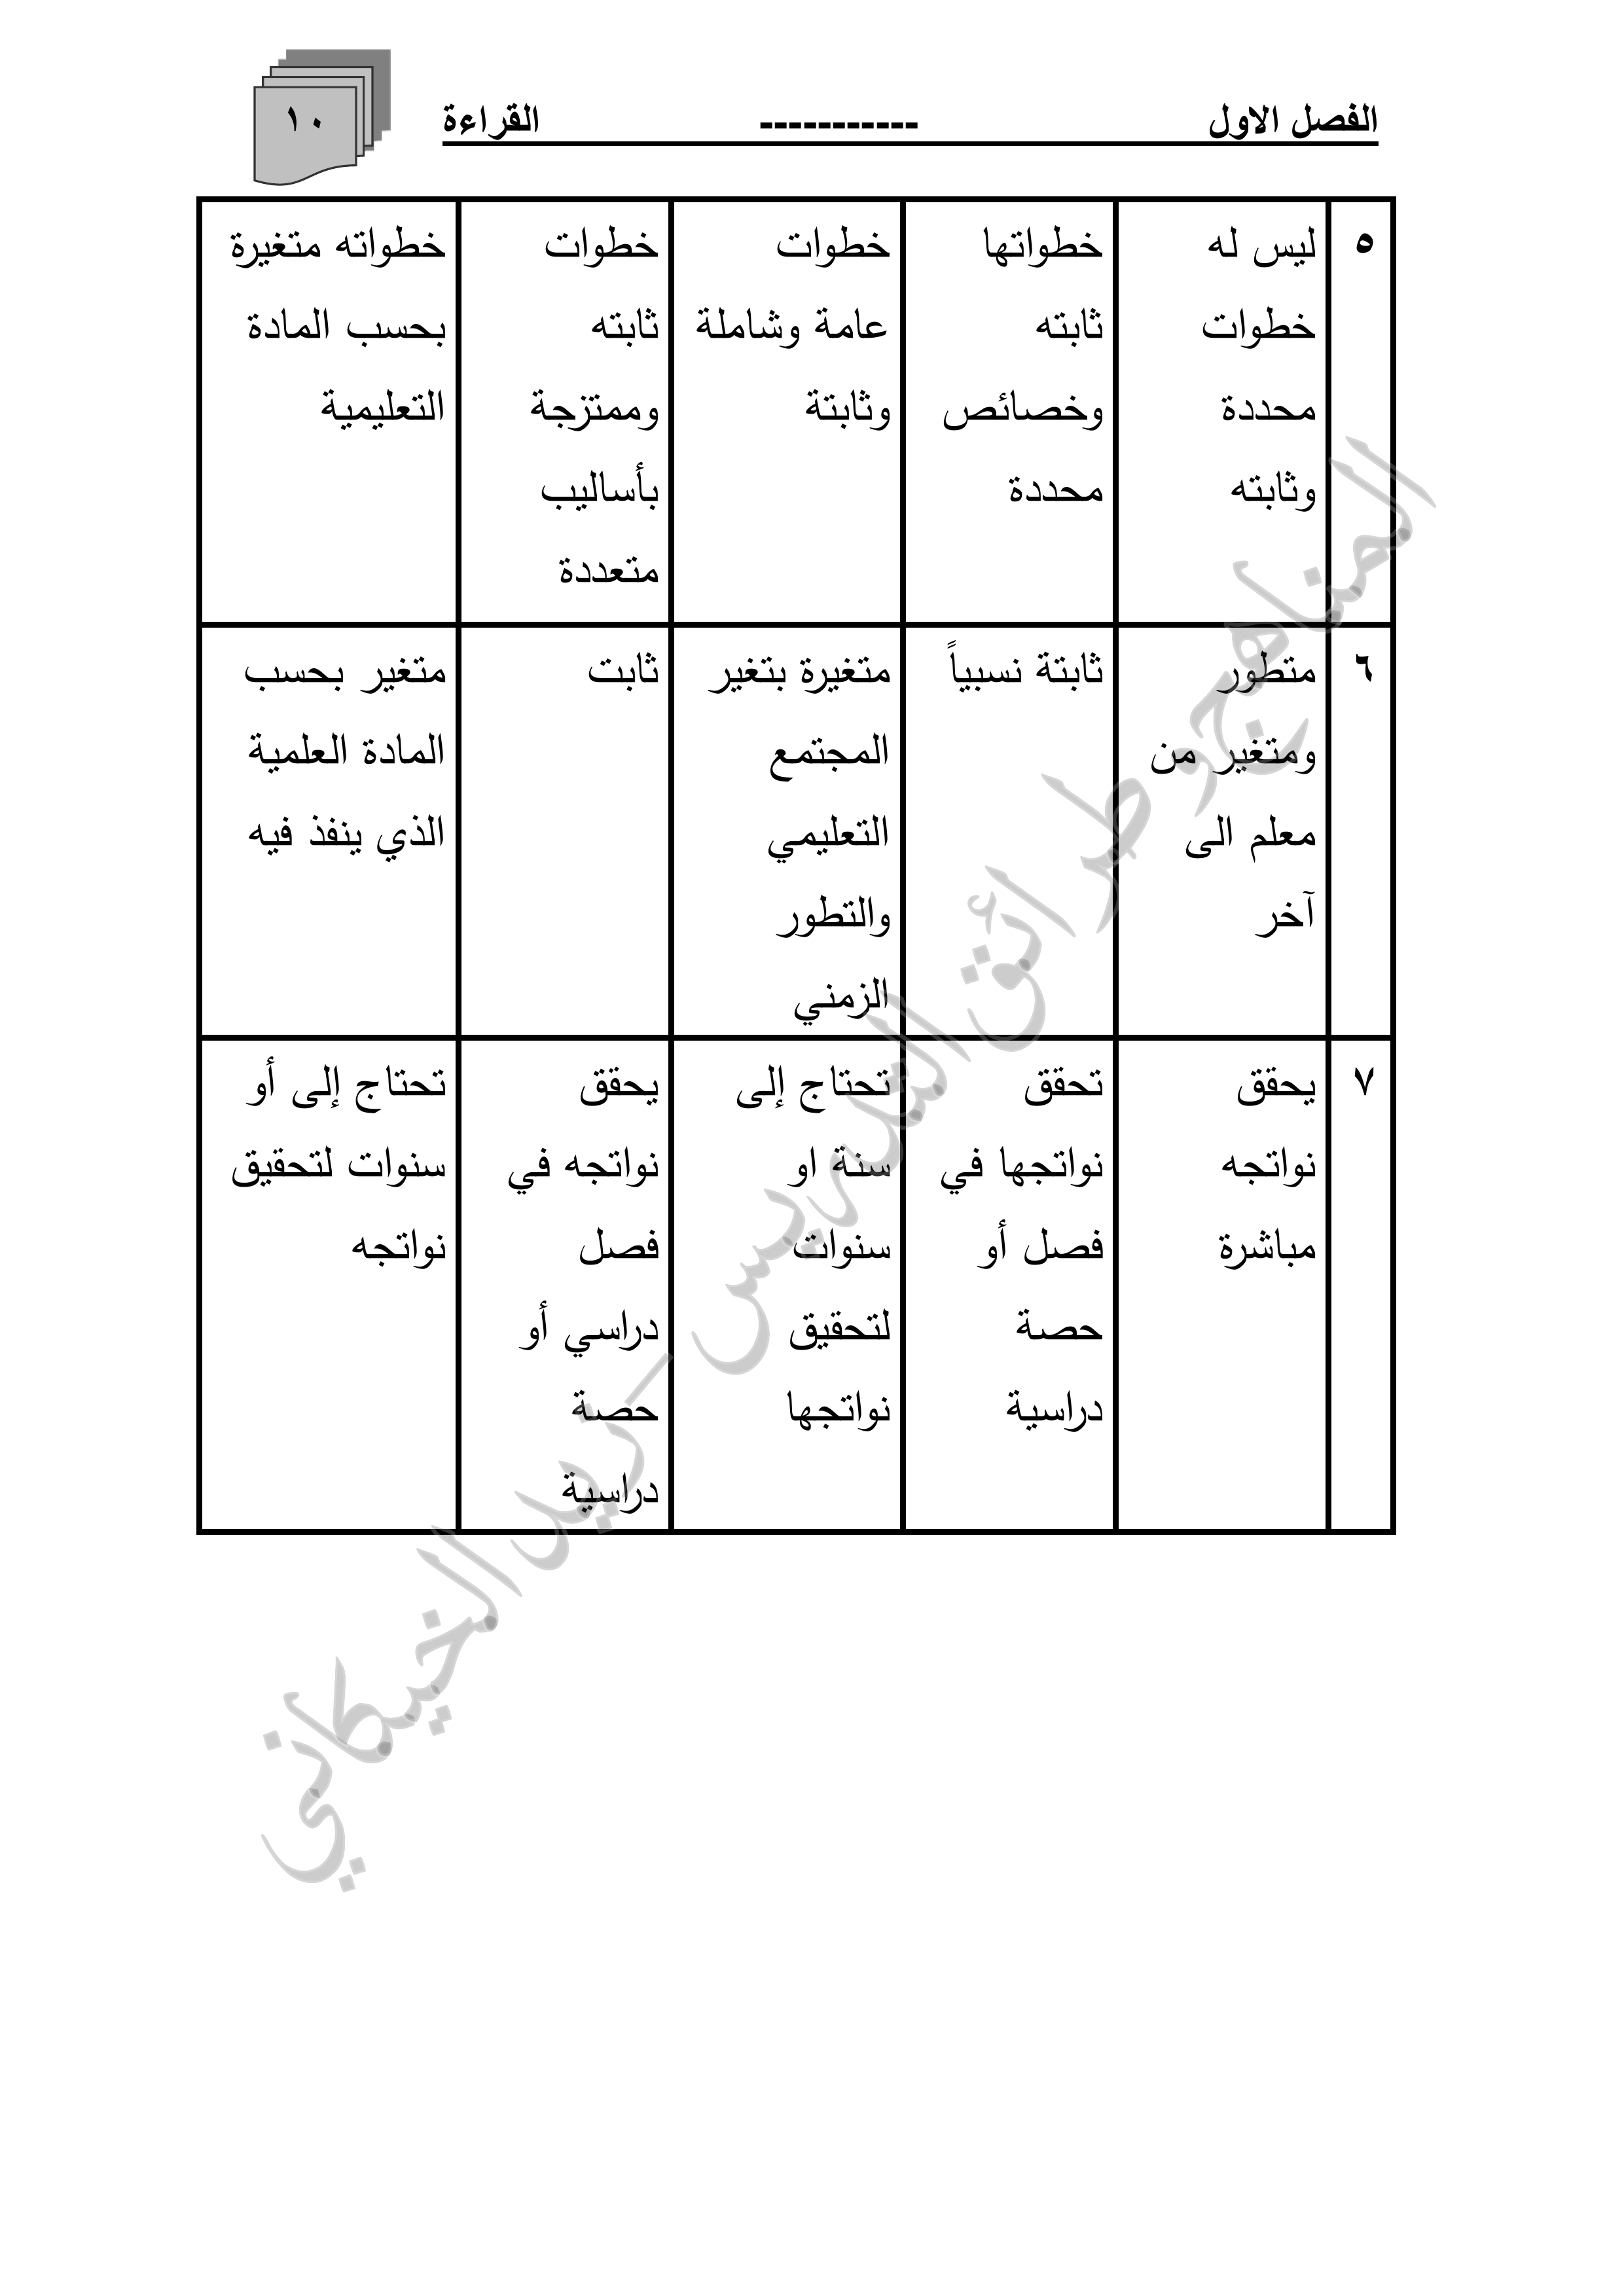 الفصل الاول ----------- القراءة
١٠
٥
ليس له
خطوات
محددة
وثابته
خطواتها
ثابته
وخصائص
محددة
خطوات
عامة وشاملة
وثابتة
خطوات
ثابته
وممتزجة
بأساليب
متعددة
خطواته متغيرة
بحسب المادة
التعليمية
٦
متطور
ومتغير من
معلم الى
آخر
ثابتة نسبياً
متغيرة بتغير
المجتمع
التعليمي
والتطور
الزمني
ثابت
متغير بحسب
المادة العلمية
الذي ينفذ فيه
٧
يحقق
نواتجه
مباشرة
تحقق
نواتجها في
فصل أو
حصة
دراسية
تحتاج إلى
سنة او
سنوات
لتحقيق
نواتجها
يحقق
نواتجه في
فصل
دراسي أو
حصة
دراسية
تحتاج إلى أو
سنوات لتحقيق
نواتجه
المناهج وطرائق التدريس - زيد الخيكاني